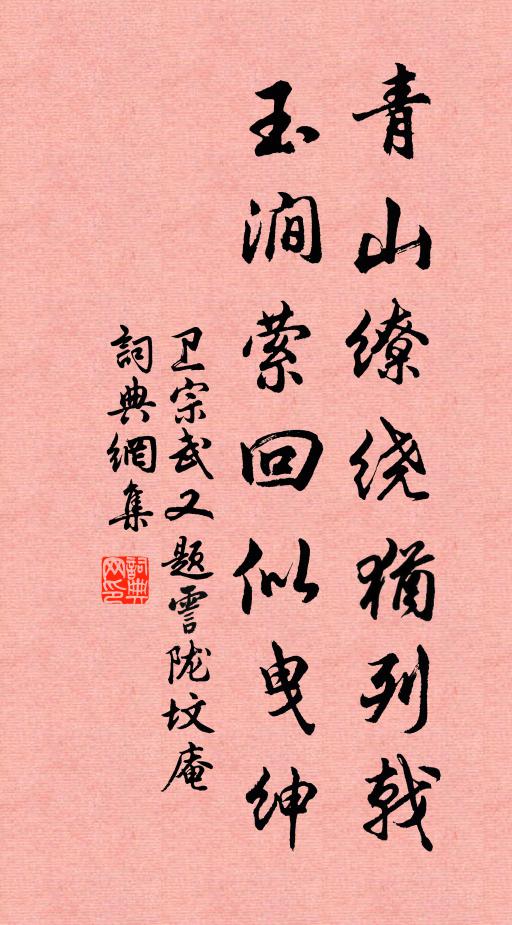 青山缭绕犹列戟
玉涧萦回似曳绅
卫宗武又题霅陇坟庵
詞典網集
詞典网印